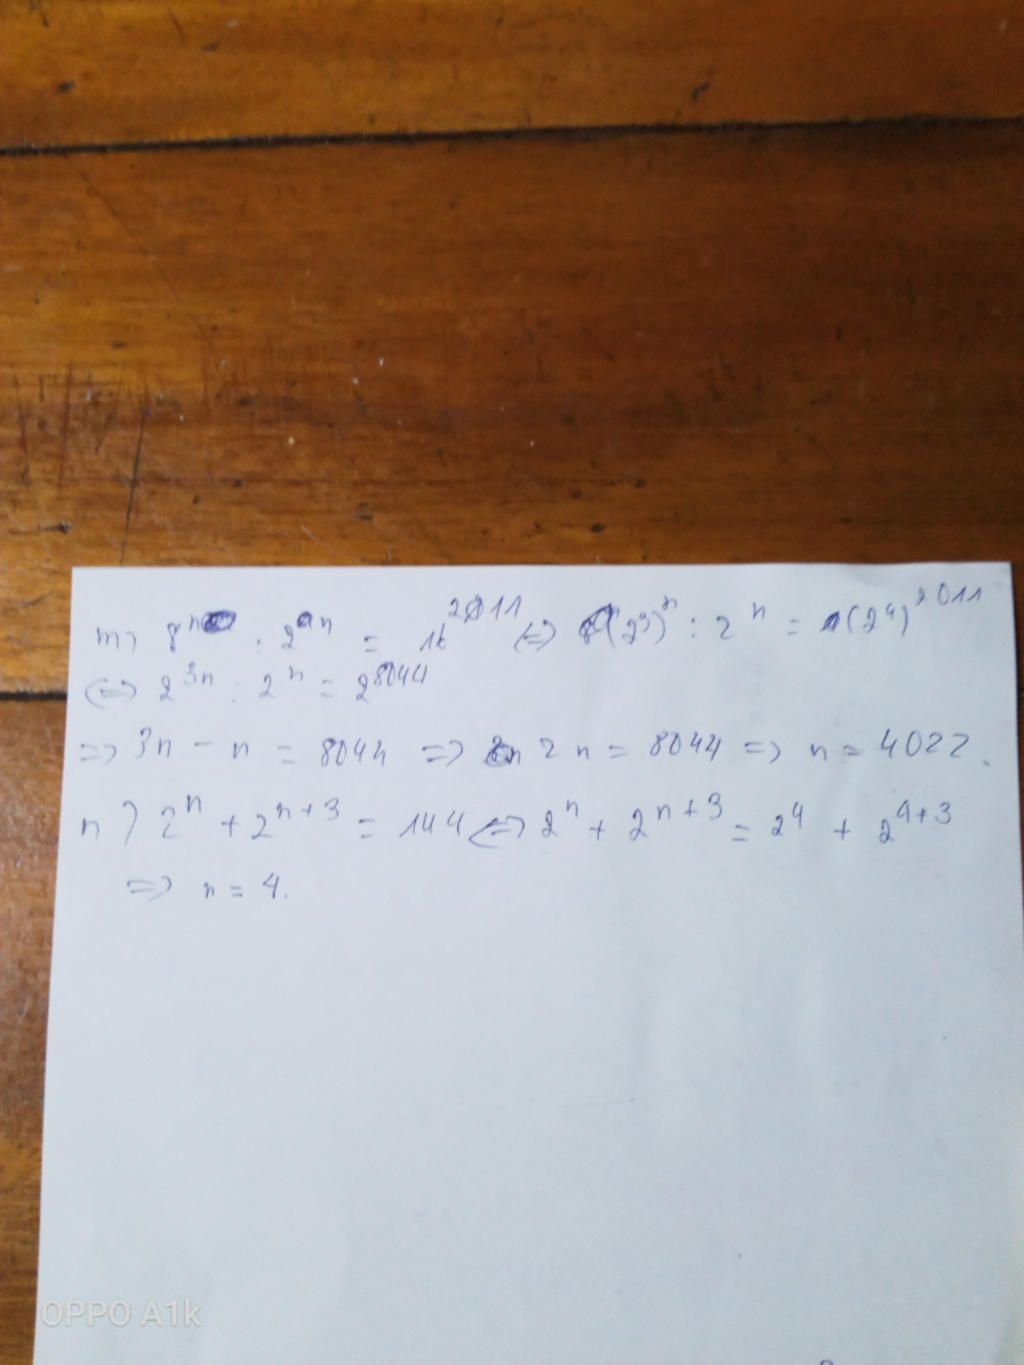 m) 8ⁿ : 2ⁿ = 16²⁰¹¹ <=> (2³)ⁿ : 2ⁿ = (2⁴)²⁰¹¹
<=> 2³ⁿ : 2ⁿ = 2⁸⁰⁴⁴
=> 3n - n = 8044 => 2n = 8044 => n = 4022.
n) 2ⁿ + 2ⁿ⁺³ = 144 <=> 2ⁿ + 2ⁿ⁺³ = 2⁴ + 2⁴⁺³
=> n = 4.
OPPO A1k